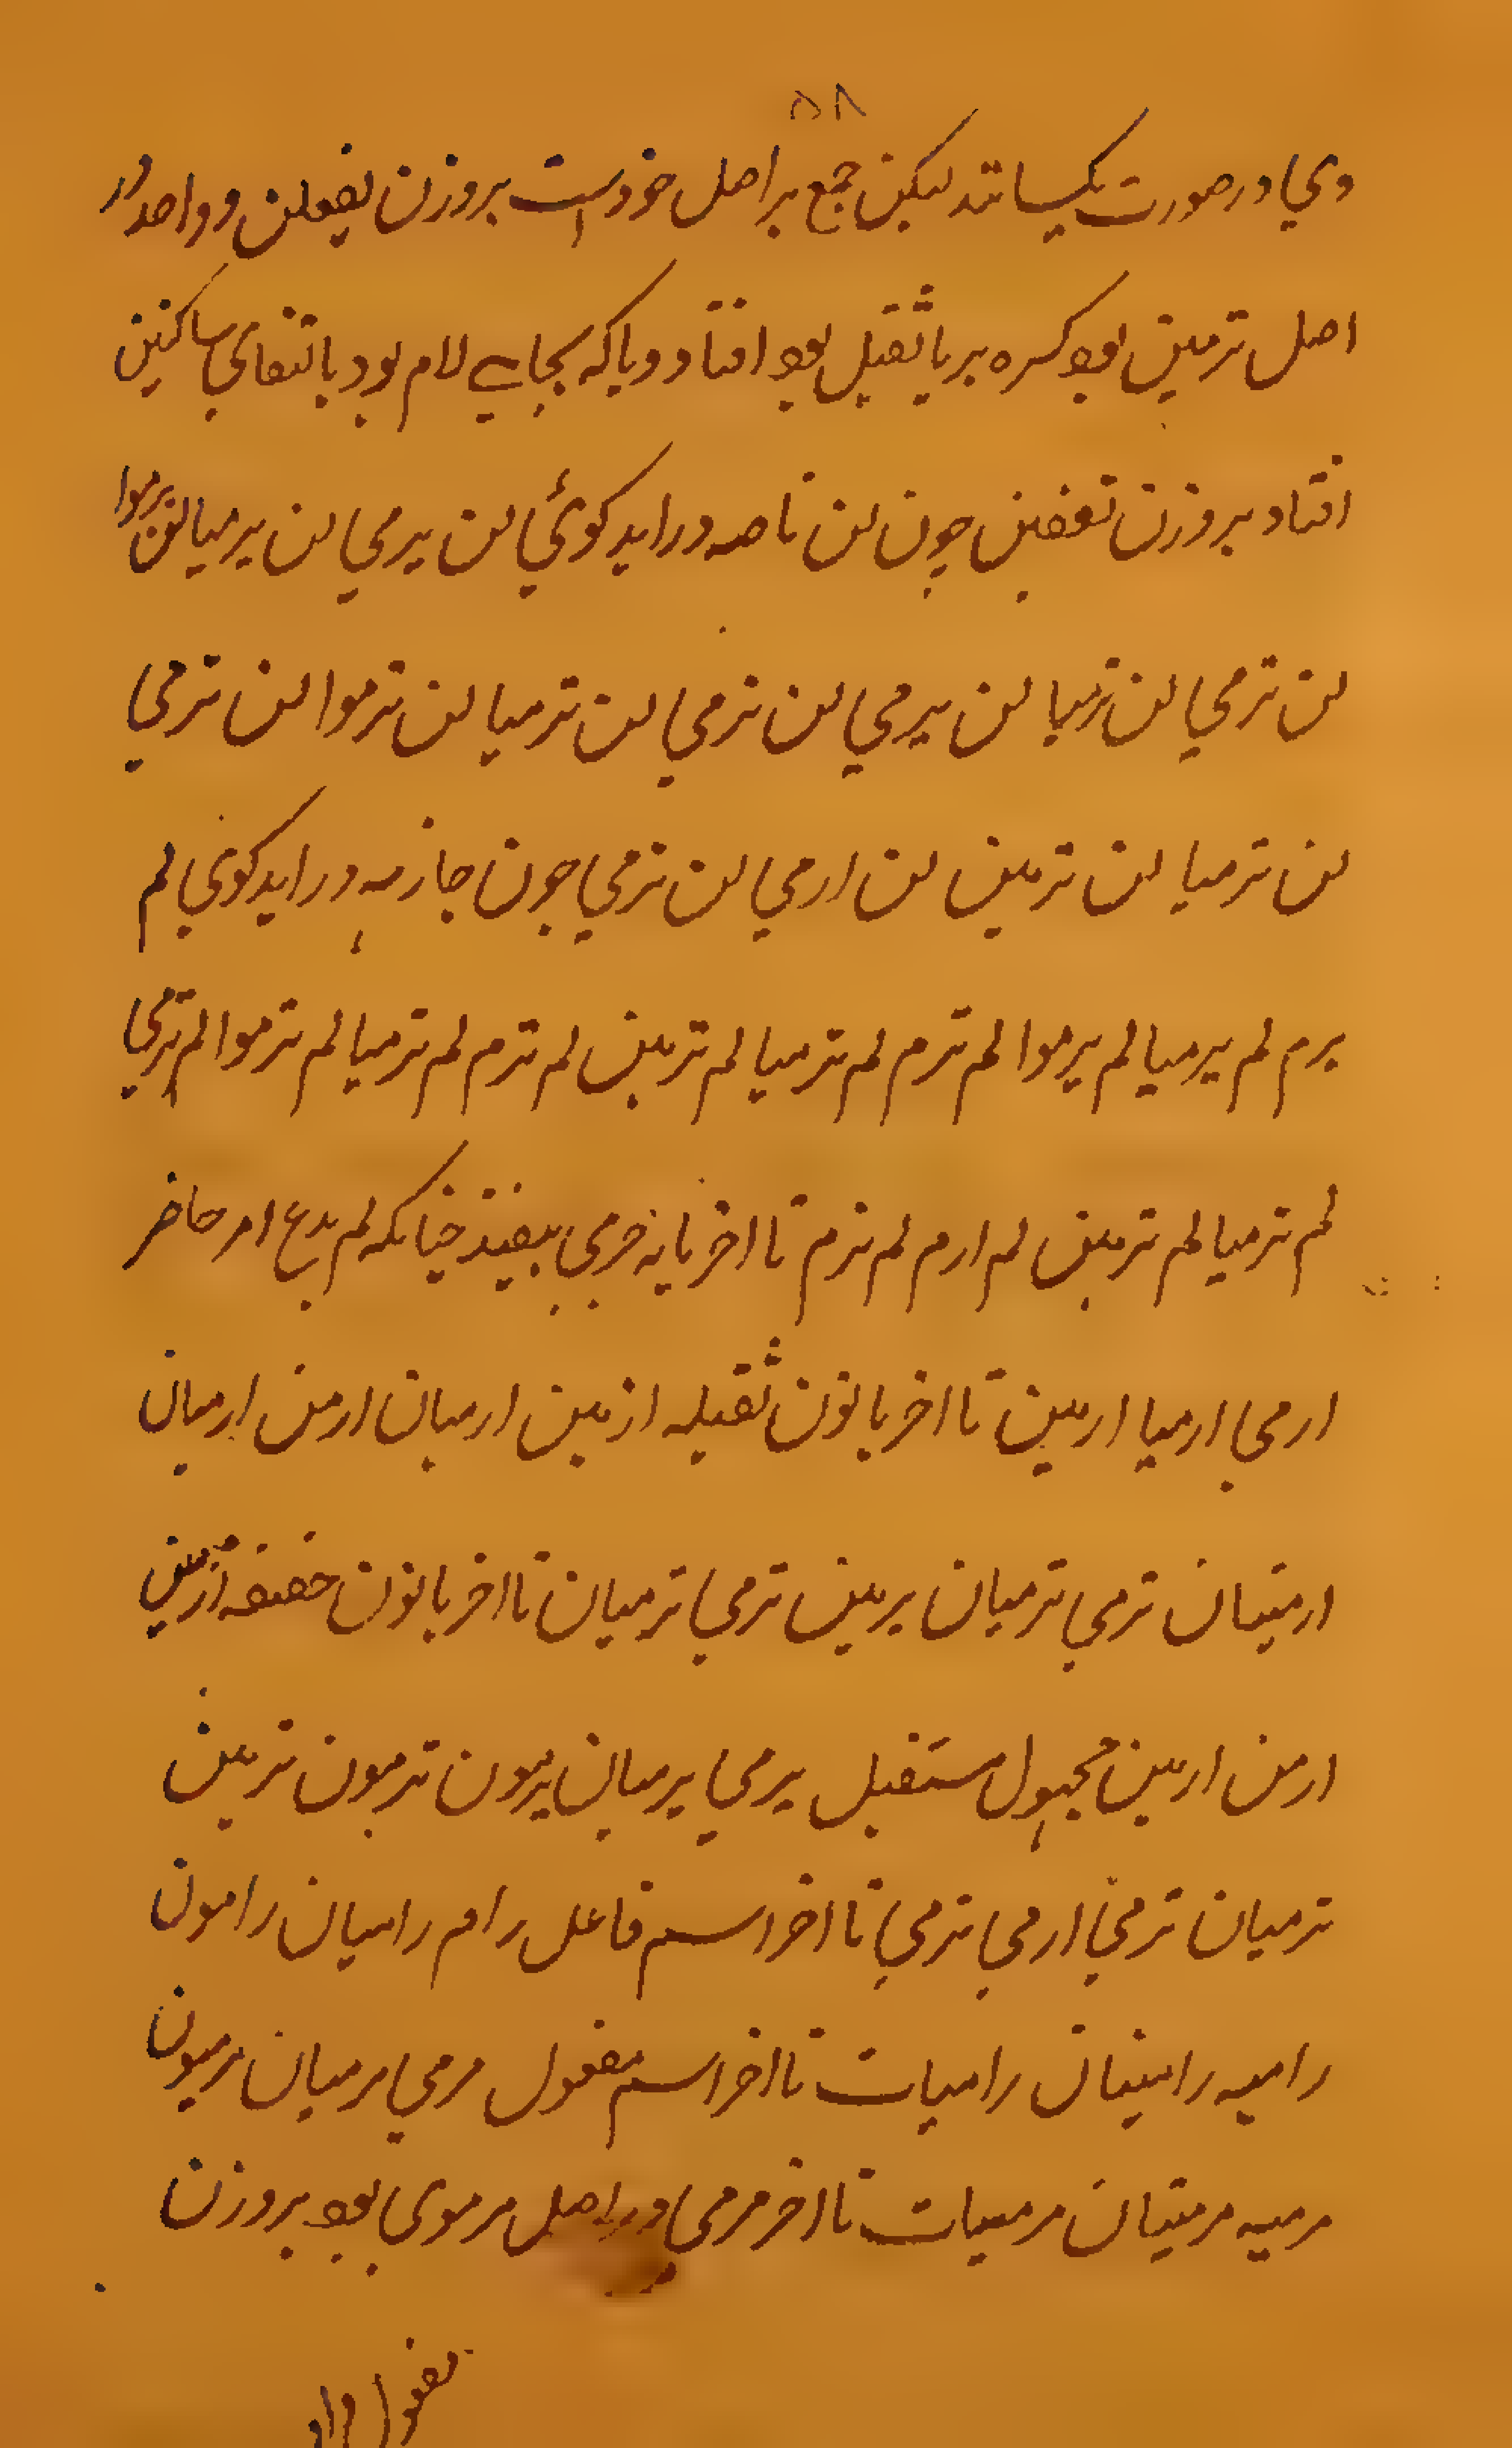 ۵۸
وي در صورت یکسانند لیکن جمع بر اصل خودست بر وزن یفعلن و واحد در
اصل ترمیین بود کسره بر یا ثقیل بود افتاد و یا که بجای لام بود بالتقای ساکنین
افتاد بر وزن تفعین چون لن ناصبه در اید کوئي لن یرمي لن یرمیا لن یرموا
لن ترمي لن ترمیا لن یرمین لن ترمي لن ترمیا لن ترموا لن ترمي
لن ترمیا لن ترمین لن ارمي لن نرمي چون جازمه در اید کوئي لم
یرم لم یرمیا لم یرموا لم ترم لم ترمیا لم یرمین لم ترم لم ترمیا لم ترموا لم ترمي
لم ترمیا لم ترمین لم ارم لم نرم تا اخر یا به جزمي بیفتد چنانکه لم یدع امر حاضر
ارمي ارمیا ارمین تا اخر با نون ثقیله ارمین ارمیان ارمن ارمیان
ارمینان ترمي ترمیان یرمین ترمي ترمیان تا اخر با نون خفیفه ارمین
ارمن ارمین مجهول مستقبل یرمي یرمیان یرمون ترمون ترمین
ترمیان ترمي ارمي نرمي تا اخر اسم فاعل رام رامیان رامون
رامیه رامیتان رامیات تا اخر اسم مفعول مرمي مرمیان مرمیون
مرمیه مرمیتان مرمیات تا اخر مرمي در اصل مرموي بود بر وزن
مفعول واو